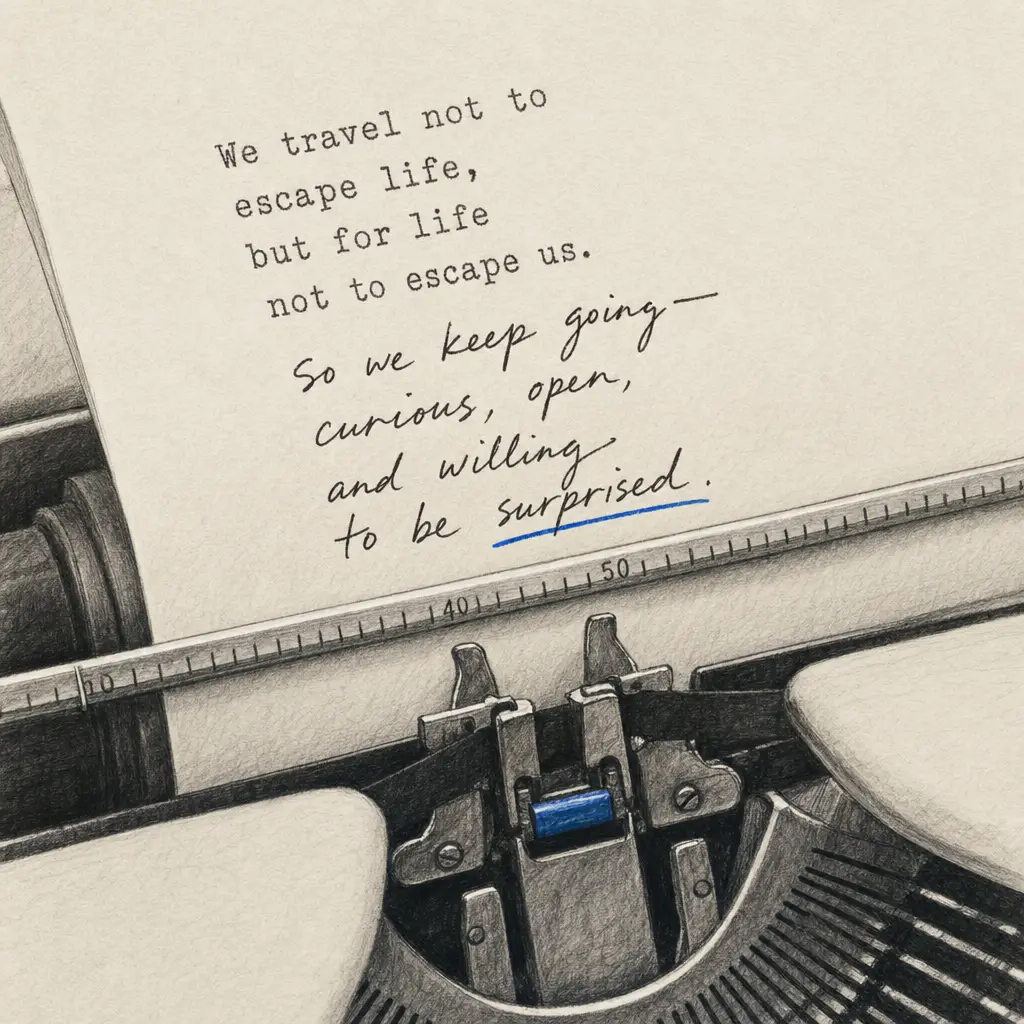 We travel not to
escape life,
but for life
not to escape us.
So we keep going—
curious, open,
and willing
to be surprised.
40 50
10